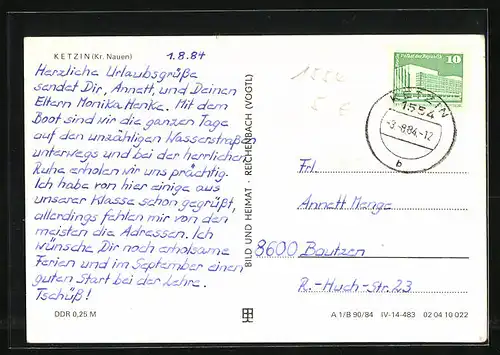 KETZIN (Kr. Nauen)
1.8.84
Herzliche Urlaubsgrüße
sendet Dir, Annett, und Deinen
Eltern Monika Henke. Mit dem
Boot sind wir die ganzen Tage
auf den unzähligen Wasserstraßen
unterwegs und bei der herrlichen
Ruhe erholen wir uns prächtig.
Ich habe von hier einige aus
unserer Klasse schon gegrüßt,
allerdings fehlen mir von den
meisten die Adressen. Ich
wünsche Dir noch erholsame
Ferien und im September einen
guten Start bei der Lehre.
Tschüß!
DDR 0,25 M
BILD UND HEIMAT · REICHENBACH (VOGTL)
10
KETZIN
1554
-3-8.84.-12
b
Frl.
Annett Menge
8600 Bautzen
R.-Huch-Str. 23
A 1/B 90/84 IV-14-483 02 04 10 022